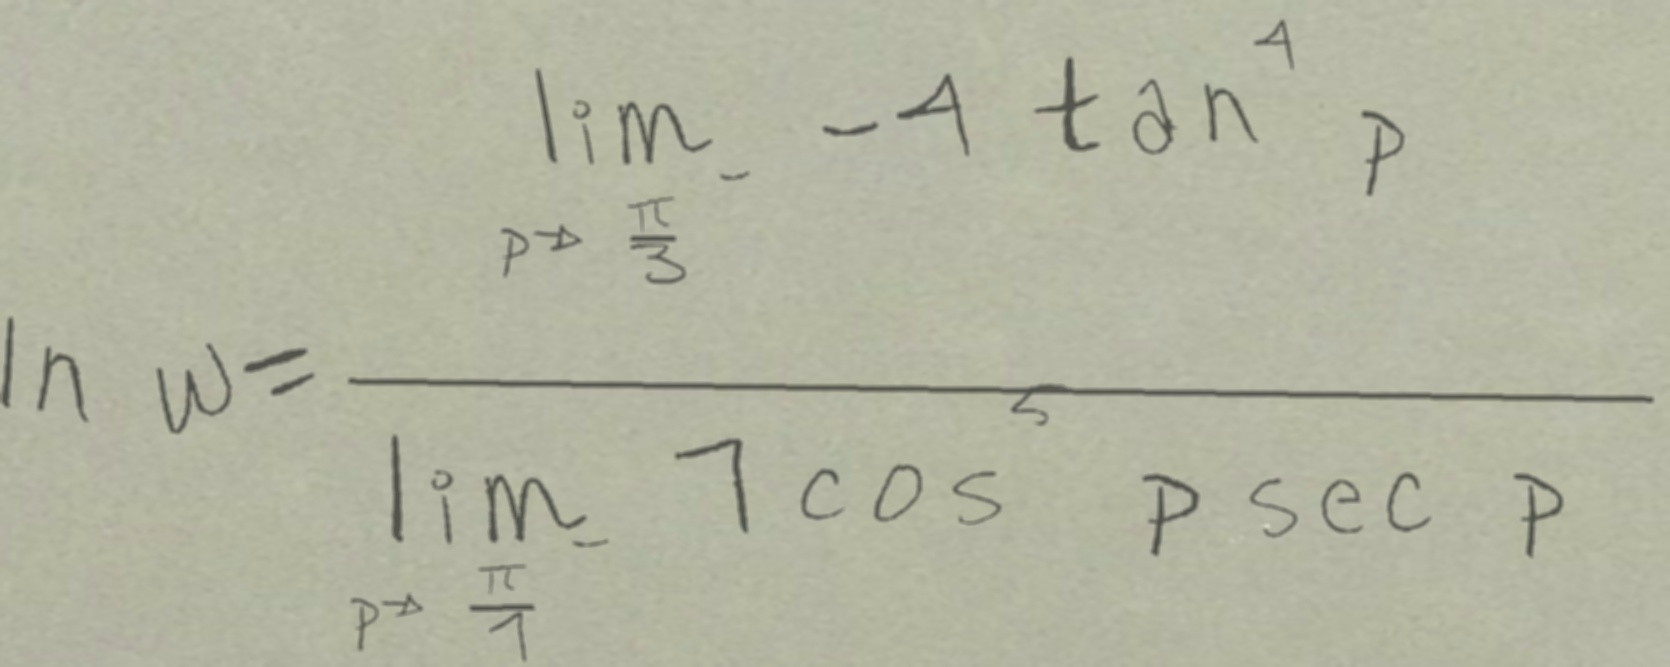 lim p→π/3⁻ -4 tan⁴ p
ln w=
lim p→π/7⁻ 7 cos⁵ p sec p